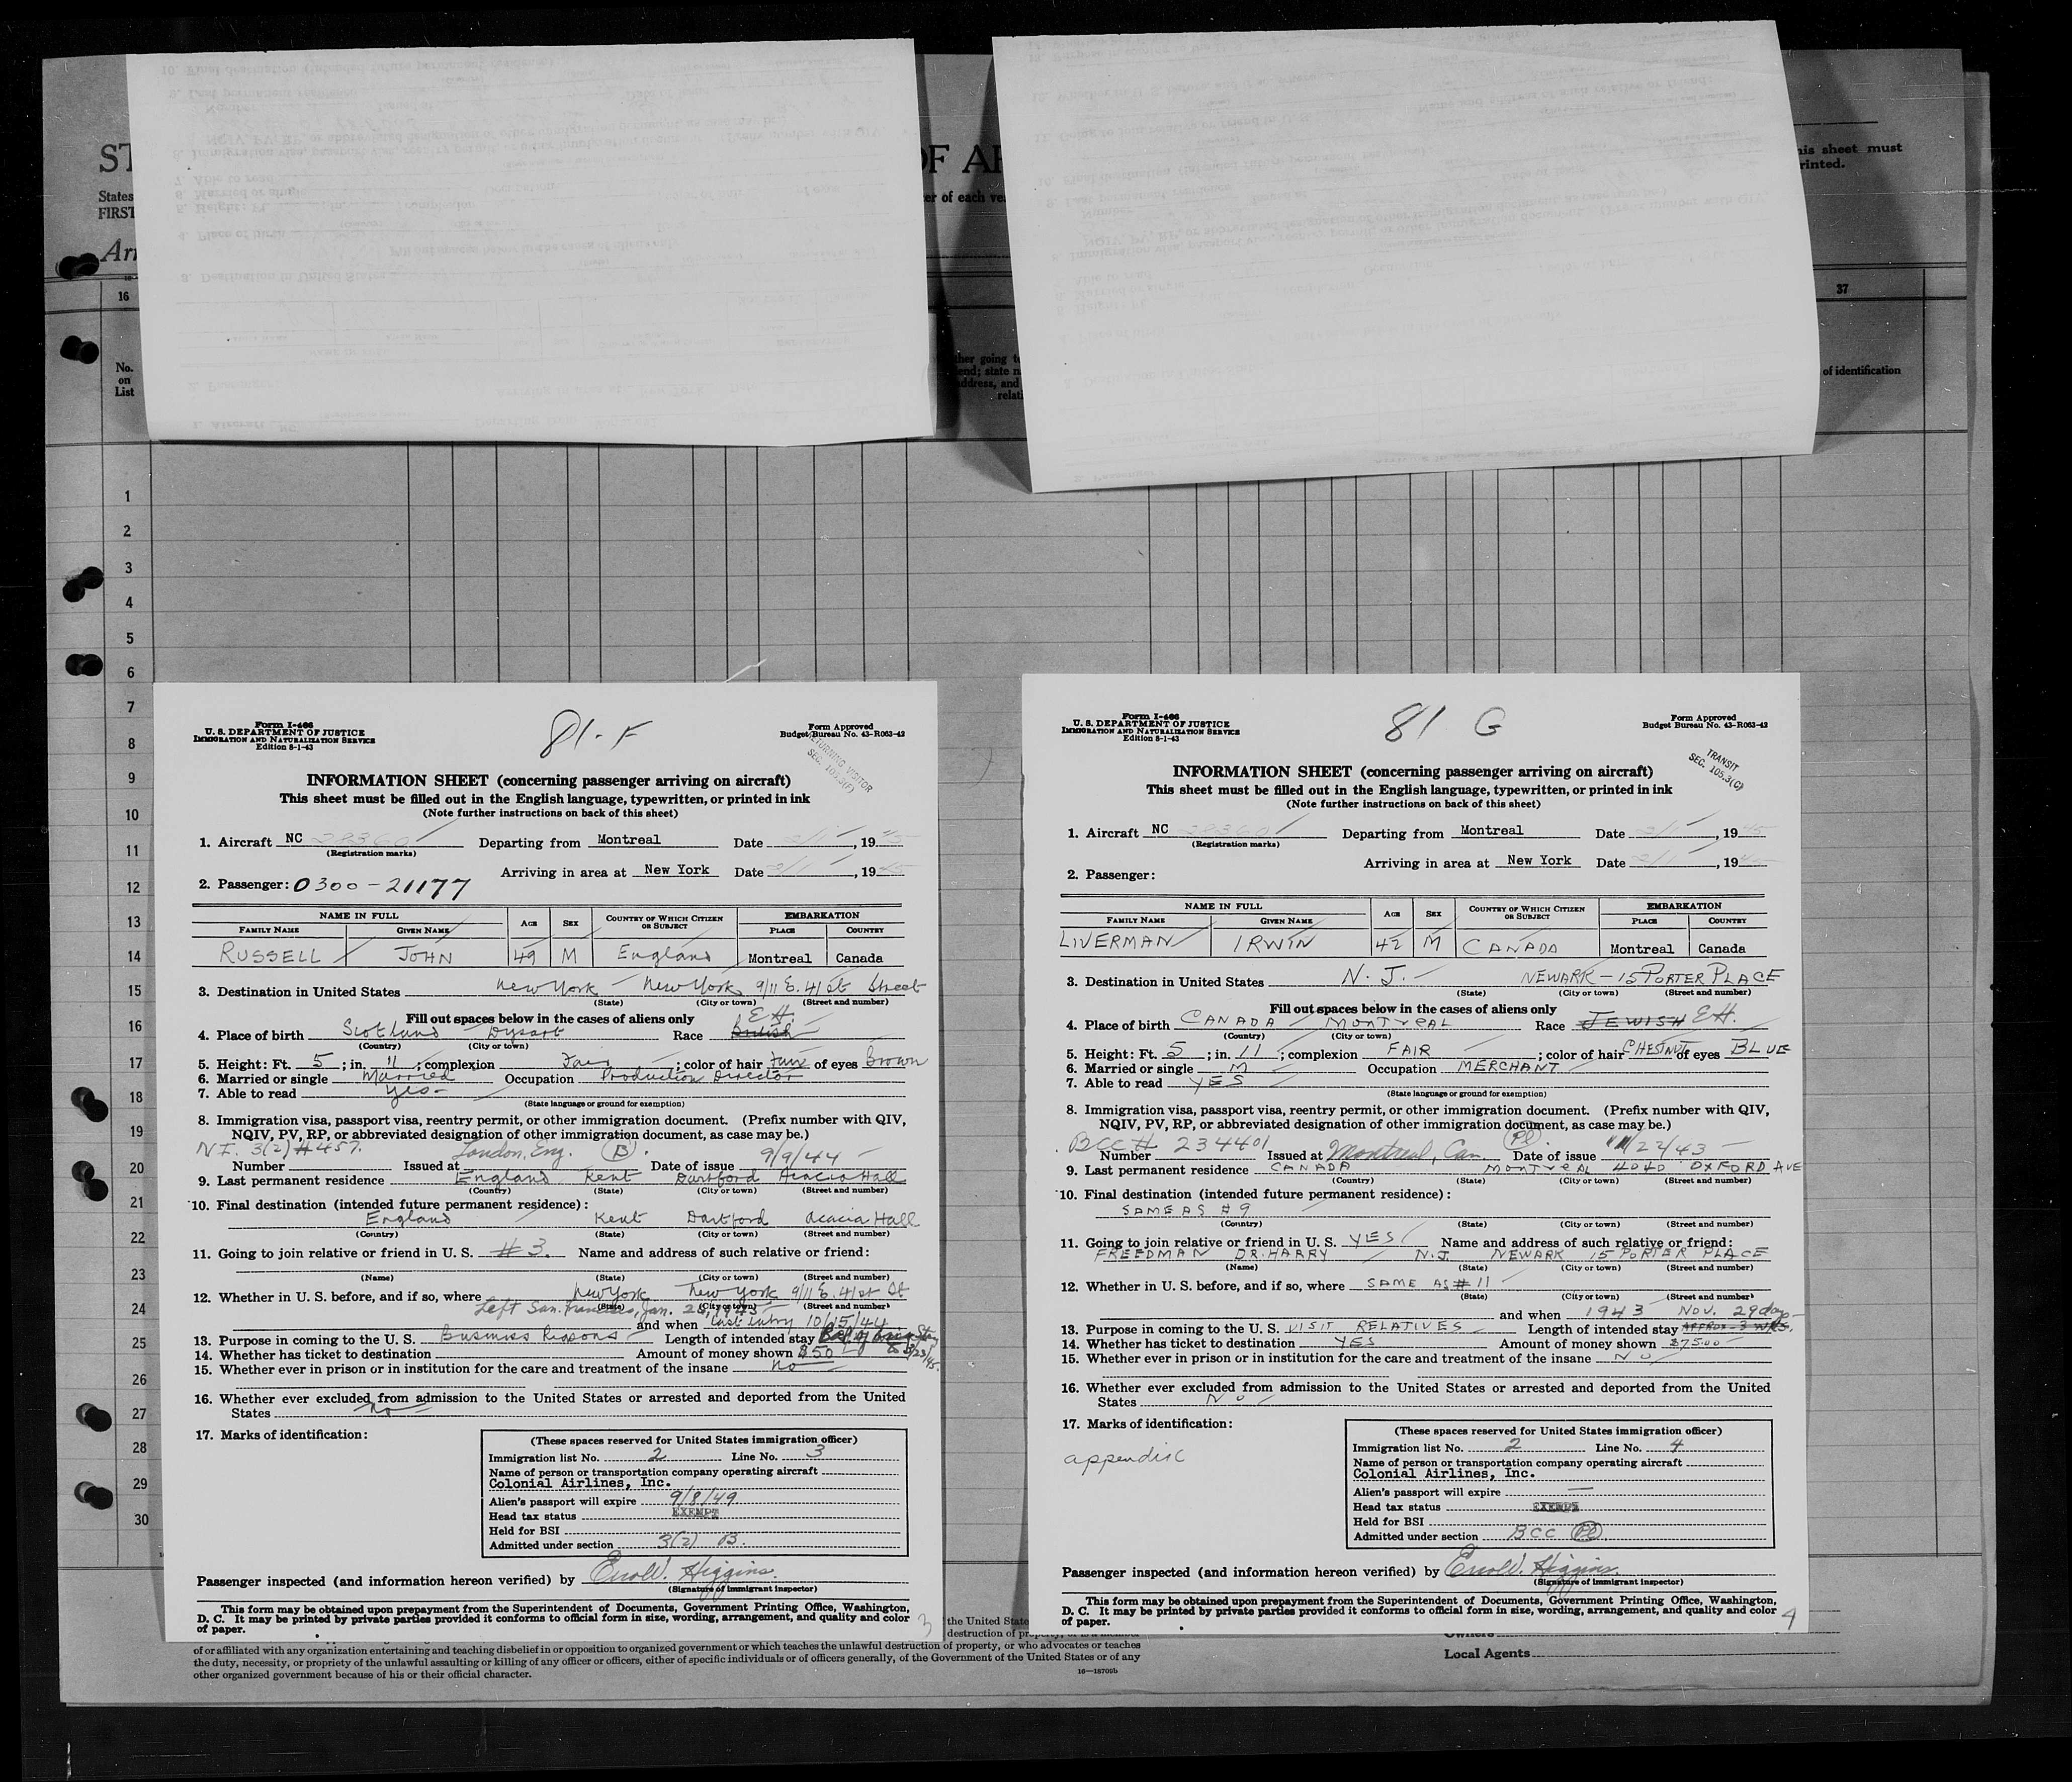 ST
OF AR
his sheet must
rinted.
States
FIRST
er of each ve
Arr
16
37
No.
on
List
her going t
end; state n
address, and
relati
of identification
1
2
3
4
5
6
7
8
9
10
11
12
13
14
15
16
17
18
19
20
21
22
23
24
25
26
27
28
29
30
Form I-466
U. S. DEPARTMENT OF JUSTICE
IMMIGRATION AND NATURALIZATION SERVICE
Edition 8-1-43
81-F
Form Approved
Budget Bureau No. 43-R063-42
RETURNING VISITOR
SEC. 105.3(F)
INFORMATION SHEET (concerning passenger arriving on aircraft)
This sheet must be filled out in the English language, typewritten, or printed in ink
(Note further instructions on back of this sheet)
1. Aircraft NC 28360 Departing from Montreal Date 3/1, 1945
(Registration marks)
Arriving in area at New York Date 3/1, 1945
2. Passenger: 0300-21177
NAME IN FULL AGE SEX COUNTRY OF WHICH CITIZEN OR SUBJECT EMBARKATION
FAMILY NAME GIVEN NAME PLACE COUNTRY
RUSSELL JOHN 49 M England Montreal Canada
3. Destination in United States New York - New York 9/11 E. 41 St Street
(State) (City or town) (Street and number)
Fill out spaces below in the cases of aliens only
4. Place of birth Scotland Dysart Race British EH.
(Country) (City or town)
5. Height: Ft. 5; in. 11; complexion Fair; color of hair of eyes Brown
6. Married or single Married Occupation Production Director
7. Able to read Yes-
(State language or ground for exemption)
8. Immigration visa, passport visa, reentry permit, or other immigration document. (Prefix number with QIV,
NQIV, PV, RP, or abbreviated designation of other immigration document, as case may be.)
N.I. 3(2) #457. London, Eng. (B).
Number Issued at Date of issue 9/9/44
9. Last permanent residence England Kent Dartford Acacia Hall
(Country) (State) (City or town) (Street and number)
10. Final destination (intended future permanent residence):
England Kent Dartford Acacia Hall
(Country) (State) (City or town) (Street and number)
11. Going to join relative or friend in U. S. #3. Name and address of such relative or friend:
(Name) (State) (City or town) (Street and number)
12. Whether in U. S. before, and if so, where New York New York 9/11 E. 41 st St
(State) (City or town) (Street and number)
Left San Francisco, Jan. 1945
and when last entry 10/15/44
13. Purpose in coming to the U. S. Business Reasons Length of intended stay
14. Whether has ticket to destination Amount of money shown $50
15. Whether ever in prison or in institution for the care and treatment of the insane no
16. Whether ever excluded from admission to the United States or arrested and deported from the United
States no
17. Marks of identification:
(These spaces reserved for United States immigration officer)
Immigration list No. 2 Line No. 3
Name of person or transportation company operating aircraft
Colonial Airlines, Inc.
Alien's passport will expire 9/8/49
Head tax status EXEMPT
Held for BSI
Admitted under section 3(2) B.
Passenger inspected (and information hereon verified) by Errol V. Higgins.
(Signature of immigrant inspector)
This form may be obtained upon prepayment from the Superintendent of Documents, Government Printing Office, Washington,
D. C. It may be printed by private parties provided it conforms to official form in size, wording, arrangement, and quality and color
of paper.
3
Form I-466
U. S. DEPARTMENT OF JUSTICE
IMMIGRATION AND NATURALIZATION SERVICE
Edition 8-1-43
81 G
Form Approved
Budget Bureau No. 43-R063-42
TRANSIT
SEC. 105.3(G)
INFORMATION SHEET (concerning passenger arriving on aircraft)
This sheet must be filled out in the English language, typewritten, or printed in ink
(Note further instructions on back of this sheet)
1. Aircraft NC 28360 Departing from Montreal Date 3/1, 1945
(Registration marks)
Arriving in area at New York Date 3/1, 19
2. Passenger:
NAME IN FULL AGE SEX COUNTRY OF WHICH CITIZEN OR SUBJECT EMBARKATION
FAMILY NAME GIVEN NAME PLACE COUNTRY
LIVERMAN IRWIN 42 M CANADA Montreal Canada
3. Destination in United States N. J. - NEWARK - 15 PORTER PLACE
(State) (City or town) (Street and number)
Fill out spaces below in the cases of aliens only
4. Place of birth CANADA MONTREAL Race JEWISH EH.
(Country) (City or town)
5. Height: Ft. 5; in. 11; complexion FAIR; color of hair CHESTNUT of eyes BLUE
6. Married or single M Occupation MERCHANT
7. Able to read YES
(State language or ground for exemption)
8. Immigration visa, passport visa, reentry permit, or other immigration document. (Prefix number with QIV,
NQIV, PV, RP, or abbreviated designation of other immigration document, as case may be.)
BCC # 234401 (Pl).
Number Issued at Montreal, Can. Date of issue 11/22/43
9. Last permanent residence CANADA MONTREAL 4040 OXFORD AVE
(Country) (State) (City or town) (Street and number)
10. Final destination (intended future permanent residence):
SAME AS #9
(Country) (State) (City or town) (Street and number)
11. Going to join relative or friend in U. S. YES Name and address of such relative or friend:
FREEDMAN DR. HARRY N.J. NEWARK 15 PORTER PLACE
(Name) (State) (City or town) (Street and number)
12. Whether in U. S. before, and if so, where SAME AS #11
(State) (City or town) (Street and number)
and when 1943 NOV. 29 days
13. Purpose in coming to the U. S. VISIT RELATIVES Length of intended stay APPROX-3 WKS.
14. Whether has ticket to destination YES Amount of money shown $75.00
15. Whether ever in prison or in institution for the care and treatment of the insane NO
16. Whether ever excluded from admission to the United States or arrested and deported from the United
States NO
17. Marks of identification:
appendic
(These spaces reserved for United States immigration officer)
Immigration list No. 2 Line No. 4
Name of person or transportation company operating aircraft
Colonial Airlines, Inc.
Alien's passport will expire —
Head tax status EXEMPT
Held for BSI
Admitted under section BCC (Pl)
Passenger inspected (and information hereon verified) by Errol V. Higgins.
(Signature of immigrant inspector)
This form may be obtained upon prepayment from the Superintendent of Documents, Government Printing Office, Washington,
D. C. It may be printed by private parties provided it conforms to official form in size, wording, arrangement, and quality and color
of paper.
4
the United State
destruction of
of or affiliated with any organization entertaining and teaching disbelief in or opposition to organized government or which teaches the unlawful destruction of property, or who advocates or teaches
the duty, necessity, or propriety of the unlawful assaulting or killing of any officer or officers, either of specific individuals or of officers generally, of the Government of the United States or of any
other organized government because of his or their official character.
16—18709b
Owners
Local Agents